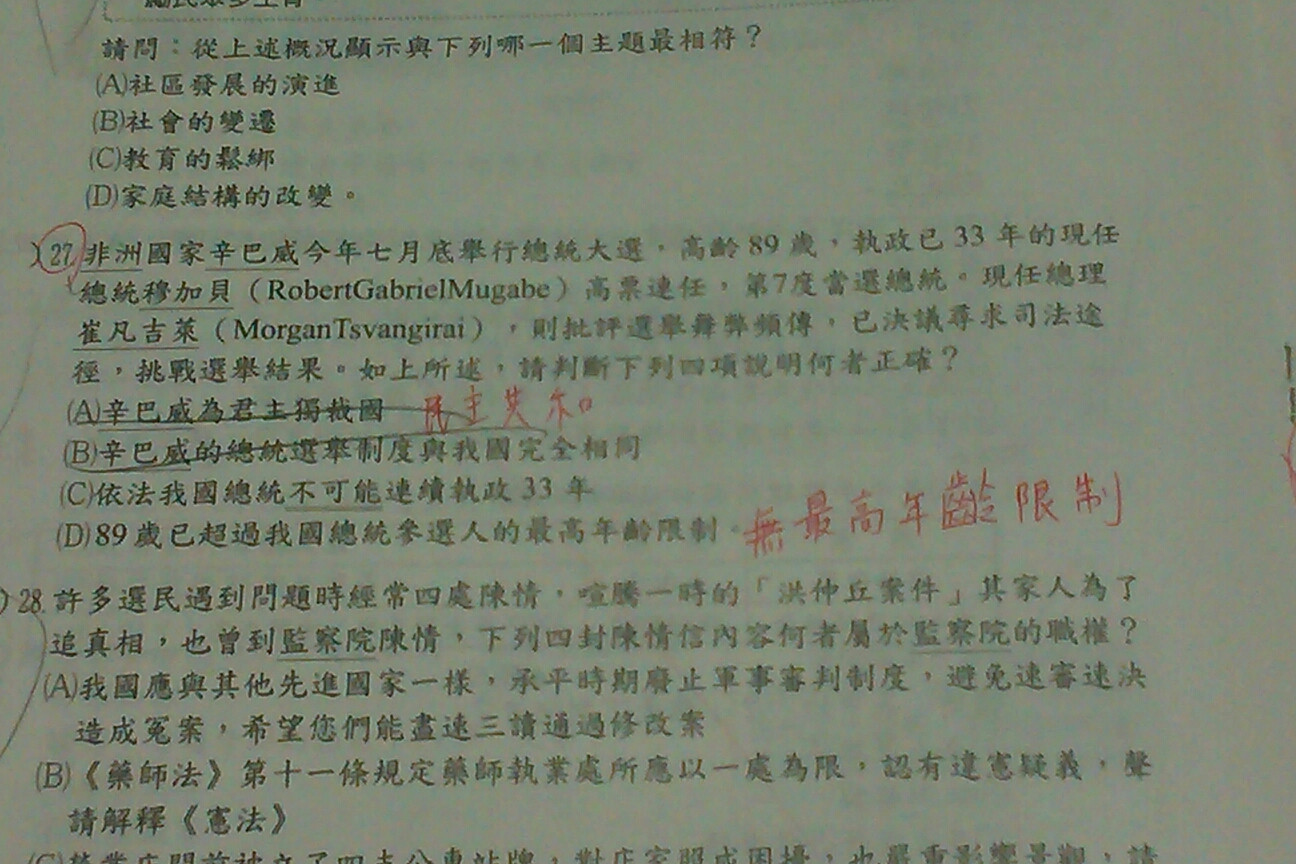 請問：從上述概況顯示與下列哪一個主題最相符？
(A)社區發展的演進
(B)社會的變遷
(C)教育的鬆綁
(D)家庭結構的改變。
)27.非洲國家辛巴威今年七月底舉行總統大選，高齡89歲，執政已33年的現任
總統穆加貝（RobertGabrielMugabe）高票連任，第7度當選總統。現任總理
崔凡吉萊（MorganTsvangirai），則批評選舉舞弊頻傳，已決議尋求司法途
徑，挑戰選舉結果。如上所述，請判斷下列四項說明何者正確？
(A)辛巴威為君主獨裁國 民主共和
(B)辛巴威的總統選舉制度與我國完全相同
(C)依法我國總統不可能連續執政33年
(D)89歲已超過我國總統參選人的最高年齡限制。無最高年齡限制
)28.許多選民遇到問題時經常四處陳情，喧騰一時的「洪仲丘案件」其家人為了
追真相，也曾到監察院陳情，下列四封陳情信內容何者屬於監察院的職權？
(A)我國應與其他先進國家一樣，承平時期廢止軍事審判制度，避免速審速決
造成冤案，希望您們能盡速三讀通過修改案
(B)《藥師法》第十一條規定藥師執業處所應以一處為限，認有違憲疑義，聲
請解釋《憲法》